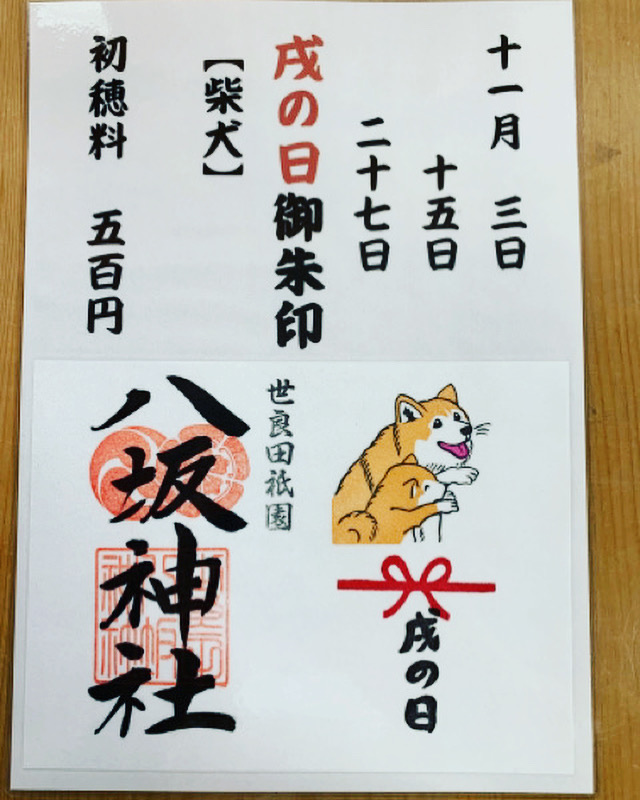 十一月 三日
十五日
二十七日
戌の日御朱印
【柴犬】
初穂料 五百円
戌の日
世良田祇園
八坂神社